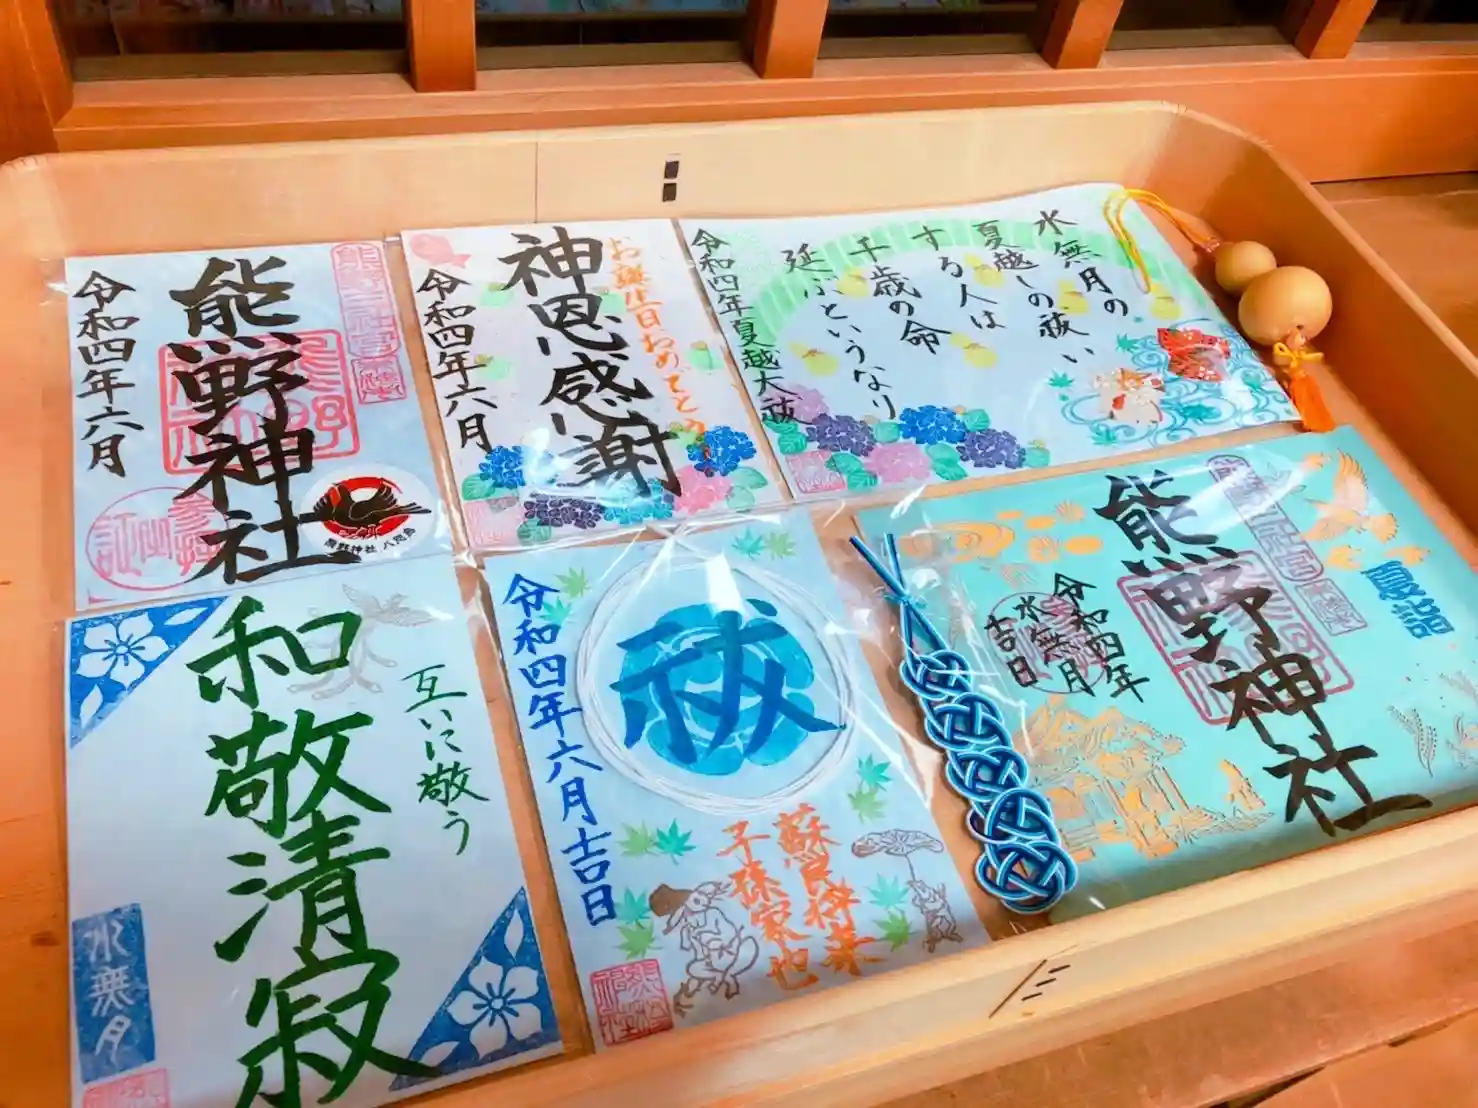 熊野神社
令和四年六月
熊野神社 八咫烏
お誕生日おめでとう
神恩感謝
令和四年六月
水無月の
夏越しの祓い
する人は
千歳の命
延ぶというなり
令和四年夏越大祓
和敬清寂
互いに敬う
水無月
祓
令和四年六月吉日
蘇民将来
子孫家也
夏詣
熊野神社
令和四年
水無月
吉日